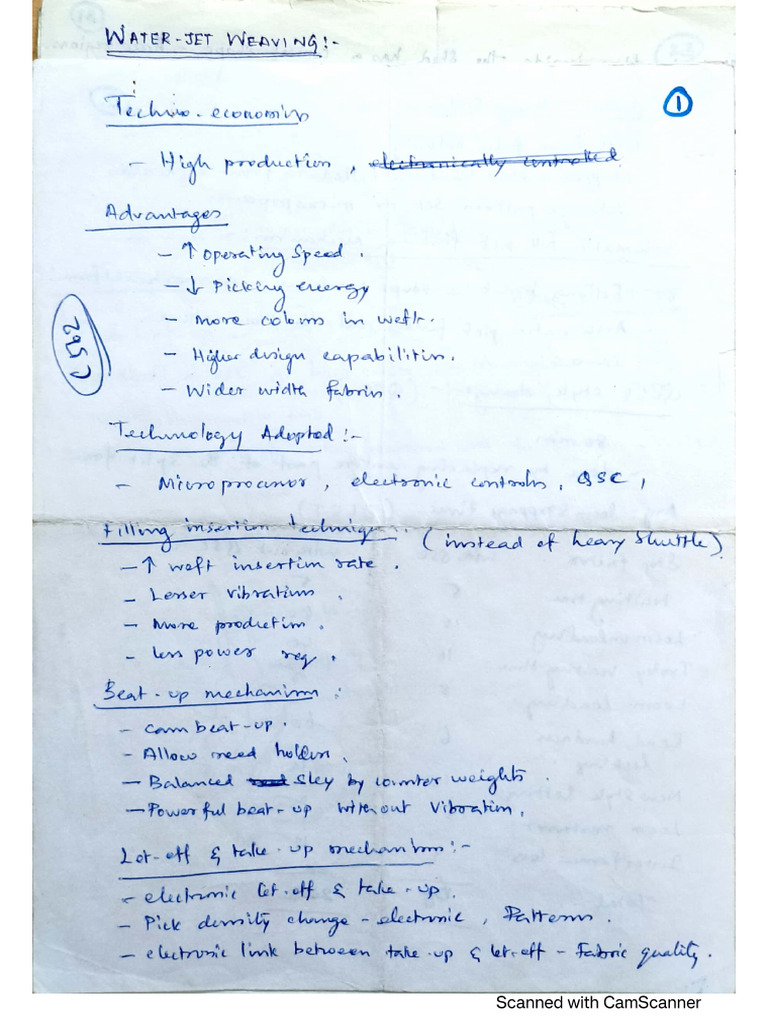 WATER-JET WEAVING:-
1
Techno-economics
- High production, electronically controlled
Advantages
- ↑ Operating Speed.
- ↓ Picking energy
- More colours in weft.
- Higher design capabilities.
- Wider width fabrics.
Technology Adopted:-
- Microprocessor, electronic controls, QSC,
Filling insertion techniques. (instead of heavy shuttle)
- ↑ weft insertion rate.
- Lesser vibrations.
- More production.
- less power req.
Beat-up mechanism:
- cam beat-up.
- Alloy reed holder.
- Balanced sley by counter weights.
- Powerful beat-up without vibration.
Let-off & take-up mechanism:-
- electronic let-off & take-up.
- Pick density change - electronic, Patterns.
- electronic link between take-up & let-off - Fabric quality.
Scanned with CamScanner